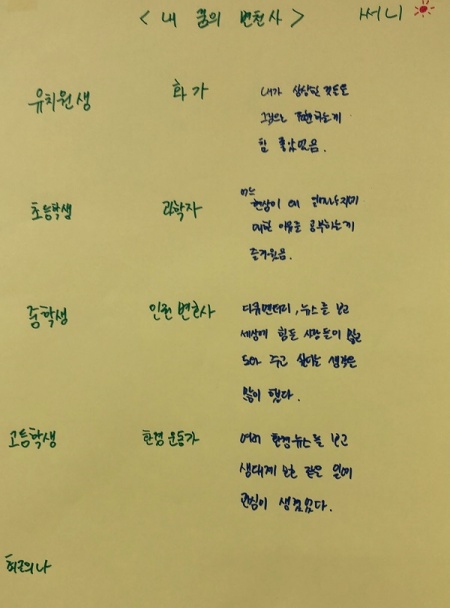 < 내 꿈의 변천사 > 써니
유치원생 화가 내가 상상한 것들을
그림으로 표현하는게
참 좋았었음.
초등학생 과학자 어느 현상이 왜 일어나는지
대한 이유를 공부하는게
즐거웠음.
중학생 인권 변호사 다큐멘터리, 뉴스를 보고
세상에 힘든 사람들이 많고
도와 주고 싶다는 생각을
많이 했다.
고등학생 환경 운동가 여러 환경뉴스를 보고
생태계 보호 같은 일에
관심이 생겼었다.
현재의 나